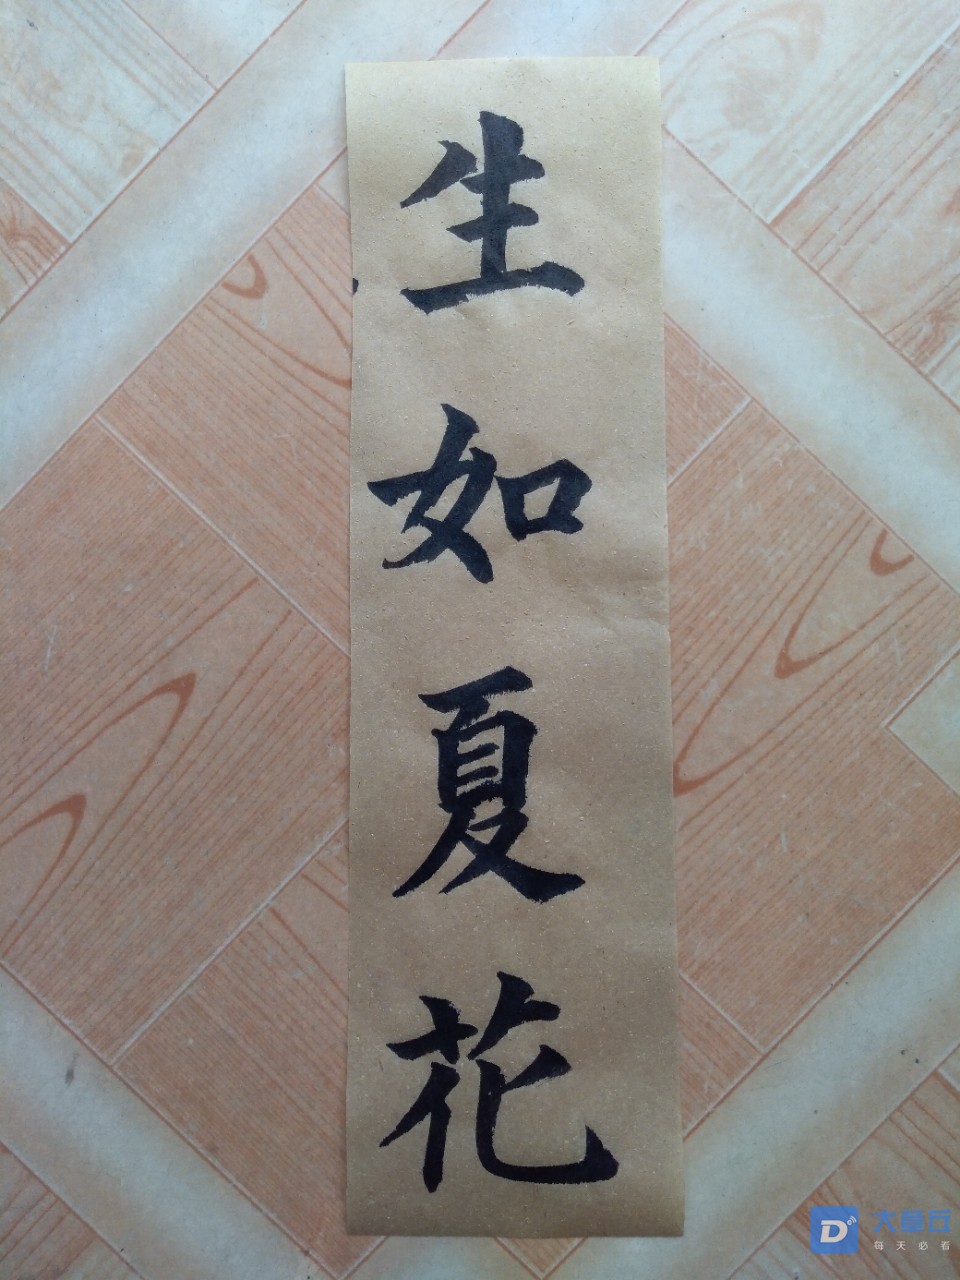 生如夏花
大鱼丘
每天必看